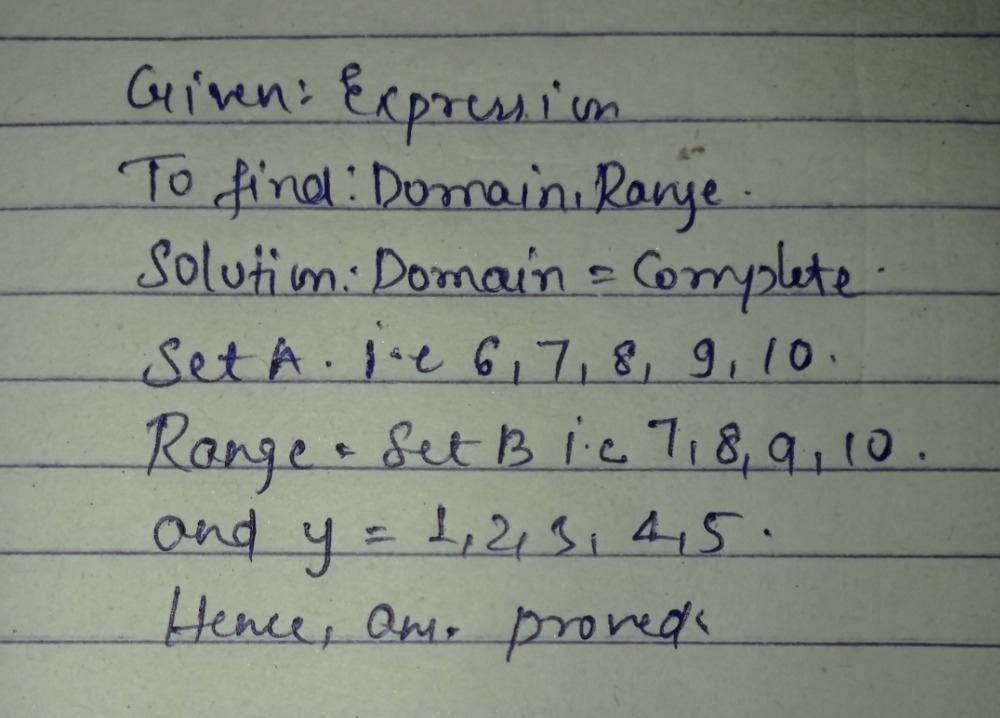 Given: Expression
To find: Domain, Range.
Solution: Domain = Complete.
Set A. i.e 6, 7, 8, 9, 10.
Range = Set B i.e 7, 8, 9, 10.
and y = 1, 2, 3, 4, 5.
Hence, ans. proved.